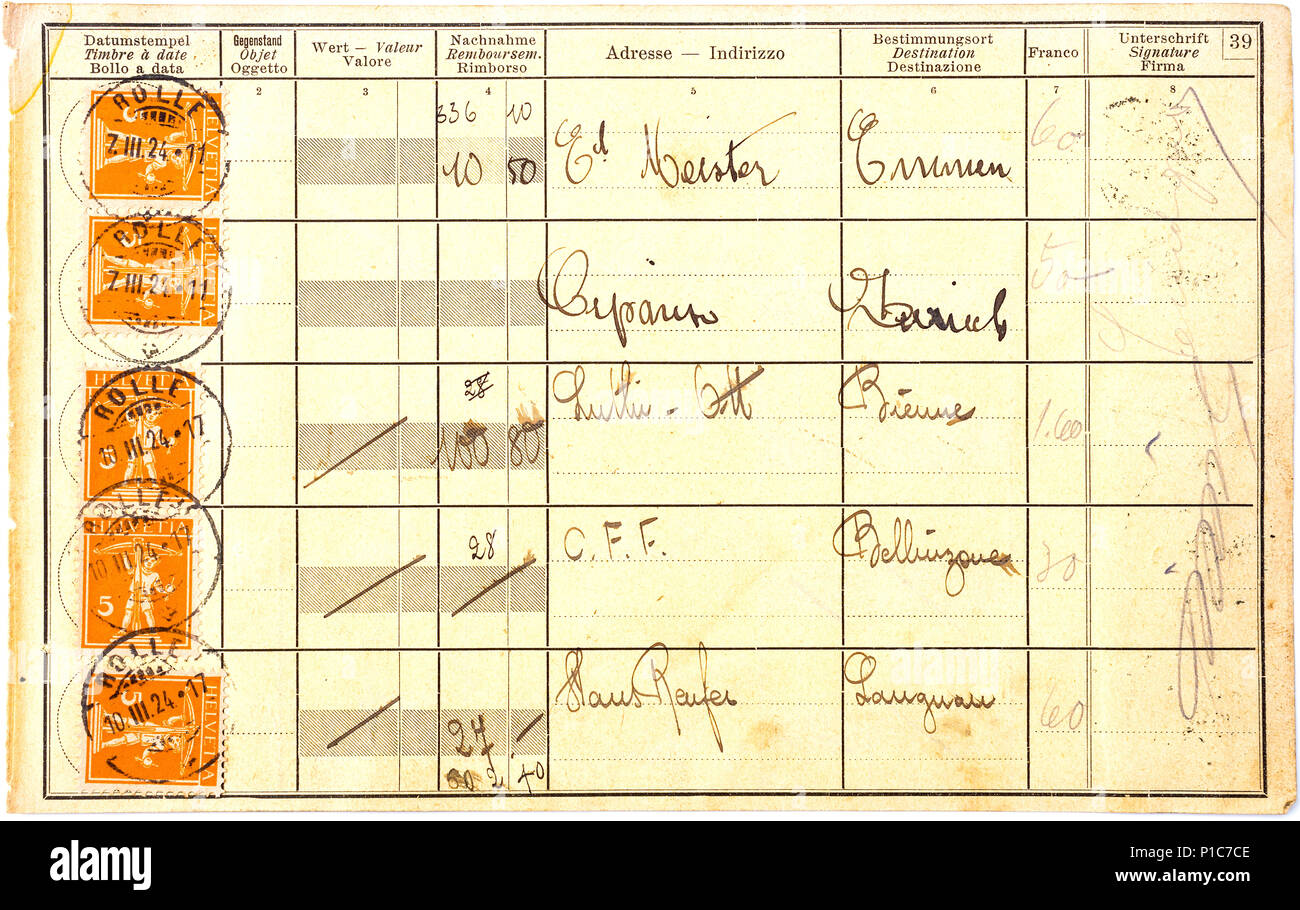 Datumstempel
Timbre à date
Bollo a data
Gegenstand
Objet
Oggetto
Wert — Valeur
Valore
Nachnahme
Remboursem.
Rimborso
Adresse — Indirizzo
Bestimmungsort
Destination
Destinazione
Franco
Unterschrift
Signature
Firma
39
2 3 4 5 6 7 8
336 10
ROLLE
7.III.24•11
5
HELVETIA
10 50
Ed Meister
Emmen
60
ROLLE
7.III.24•11
HELVETIA
Zürich
50
HELVETIA
ROLLE
10.III.24•17
28
100 80
Ott
Bienne
1.60
HELVETIA
ROLLE
10.III.24•17
5
28
C. F. F.
Bellinzone
30
ROLLE
10.III.24•17
5
HELVETIA
27
2 40
Hans
Langnau
60
alamy
alamy
Image ID: P1C7CE
www.alamy.com